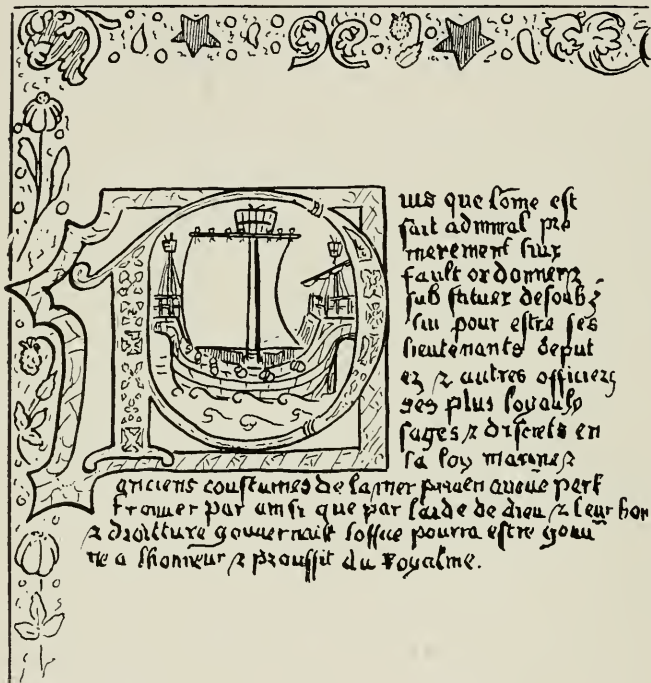 Puis que lome est
fait admiral pre
merement luy
fault ordonner ⁊
substituer desoubz
lui pour estre ses
lieutenants deput
ez ⁊ autres officiers
des plus loyaulx
sages ⁊ discrets en
la loy marine ⁊
anciens coustumes de la mer aucue part
trouver par ainsi que par laide de dieu ⁊ leur bon
⁊ droitture gouvernaile loffice pourra estre gouu
ne a lhonneur ⁊ prouffit du Royalme.